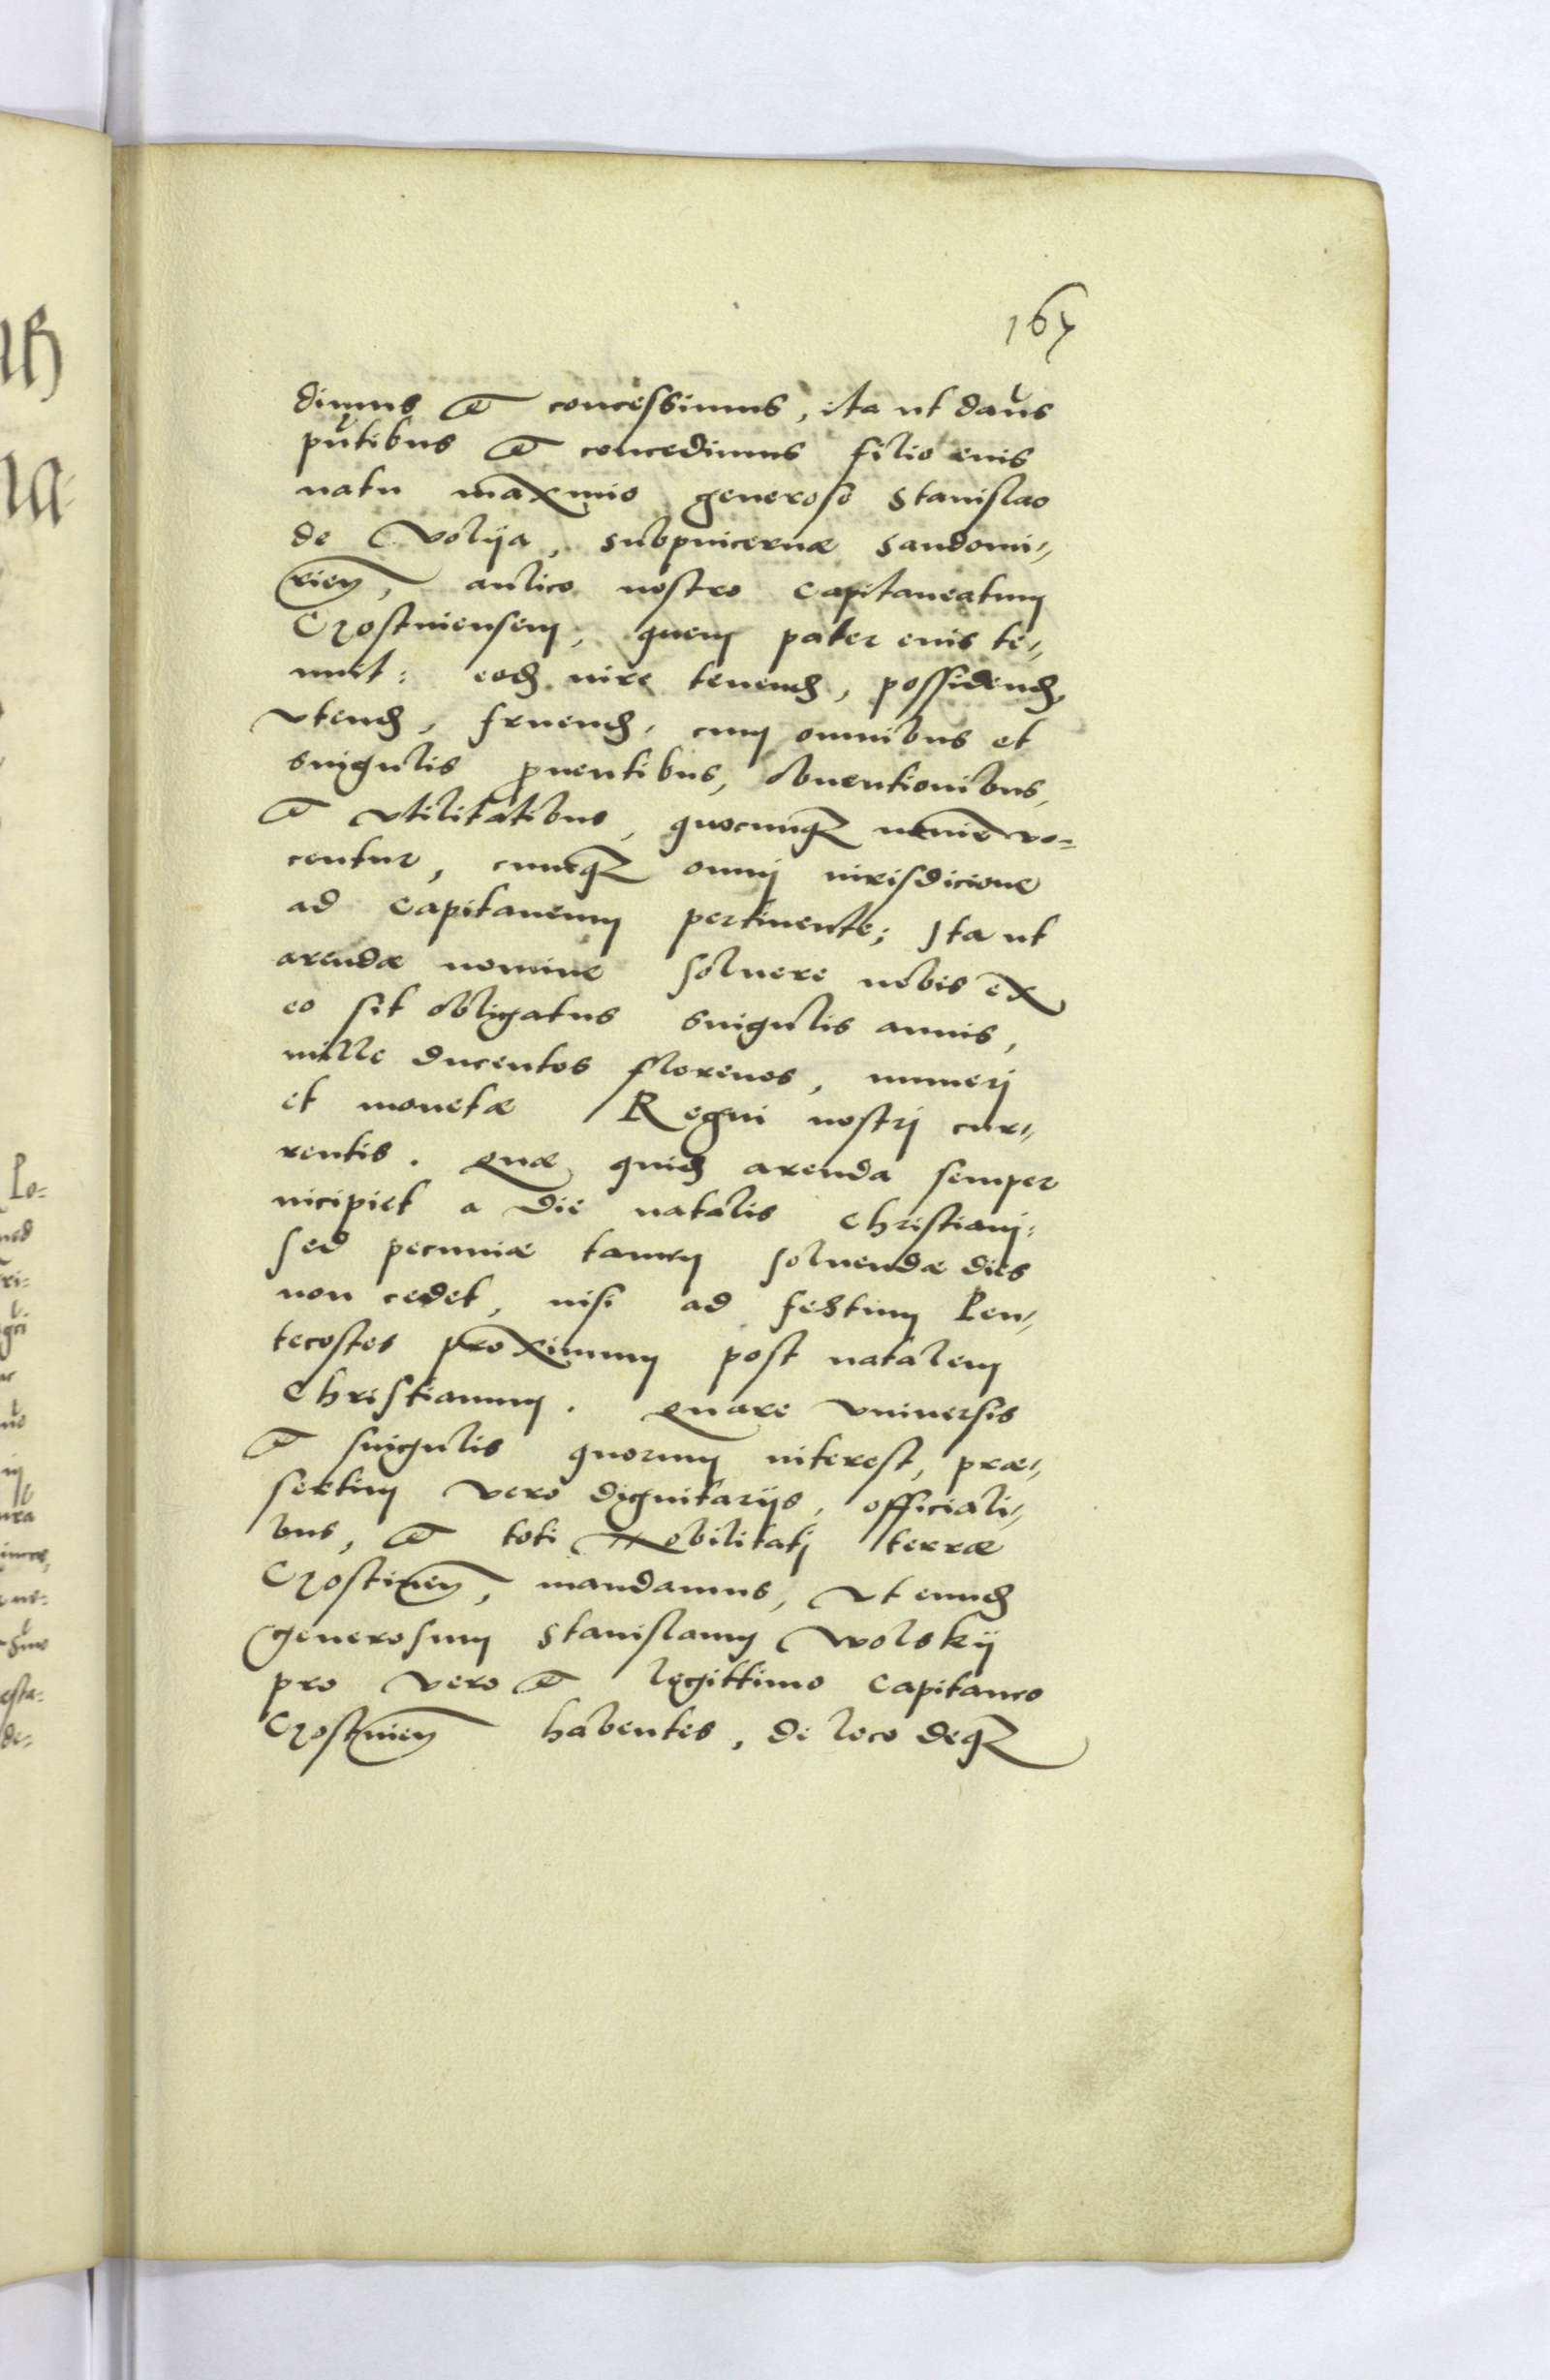 167
dimus et concessimus, ita ut damus
pñtibus et concedimus filio euis
natu maximo generoso Stanislao
de Volija, subpincernæ Sandomi„
rieñ, aulico nostro Capitaneatum
Crostniensem, quem pater euis te„
nuit: eod iure tenend, possidend,
vtend, fruend, cum omnibus et
singulis prouentibus, obuentionibus,
et vtilitatibus, quocunq nomine vo=
centur, cumq omnj iurisdicione
ad Capitaneum pertinente; Ita ut
arendæ nomine soluere nobis ex
eo sit obligatus singulis annis,
mille ducentos florenos, numerj
et monetæ Regni nostrj cur„
rentis. Quæ quid arenda semper
incipiet a die natalis Christianj:
sed pecuniæ tamen soluendæ dies
non cedet, nisi ad festum Pen„
tecostes proximum post natalem
Christianum. Quare vniuersis
et singulis quorum interest, præ„
sertim vero dignitarijs, officiali„
bus, et toti Nobilitatj terræ
Crostineñ, mandamus, vt eund
generosum Stanislaum Wolskij
pro vero et legittimo Capitaneo
Crostnieñ habentes, de loco deq